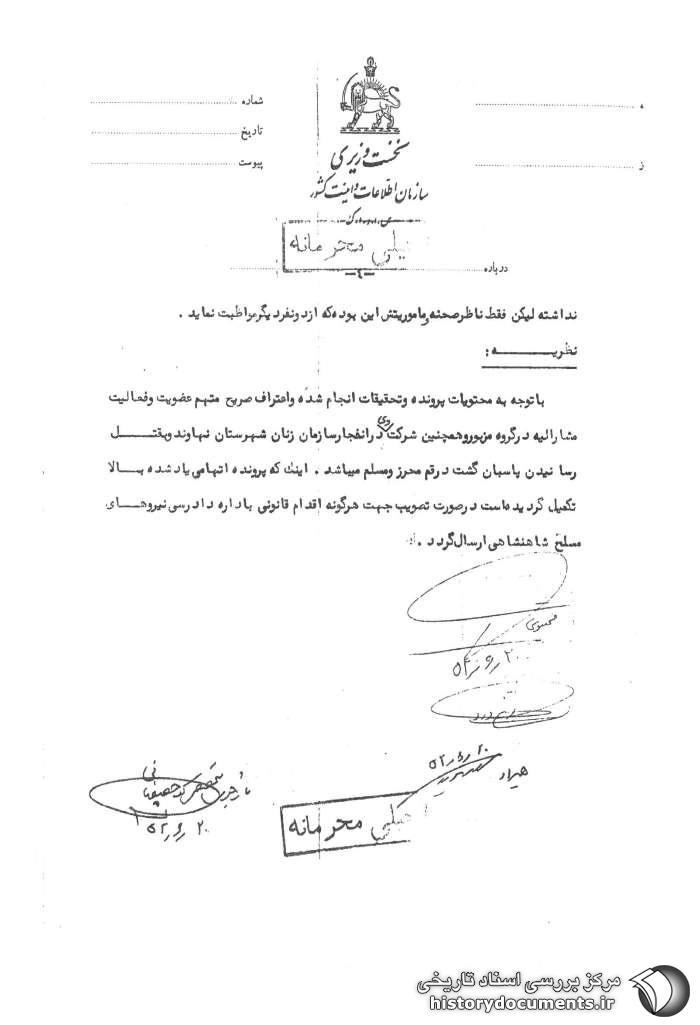 شماره
تاریخ
پیوست
نخست وزیری
سازمان اطلاعات و امنیت کشور
س.ا.و.ا.ک
خیلی محرمانه
درباره
-۴-
نداشته لیکن فقط ناظرصحنه وماموریتش این بوده که ازدونفردیگرمواظبت نماید .
نظریه :
باتوجه به محتویات پرونده وتحقیقات انجام شده واعتراف صریح متهم عضویت وفعالیت
مشارالیه درگروه مزبوروهمچنین شرکت وی درانفجارسازمان زنان شهرستان نهاوند وبقتل
رسانیدن پاسبان گشت درقم محرز ومسلم میباشد . اینک که پرونده اتهامی یادشده بالا
تکمیل گردیده است درصورت تصویب جهت هرگونه اقدام قانونی باداره دادرسی نیروهای
مسلح شاهنشاهی ارسال گردد .
۲۰
خیلی محرمانه
۲۰
مرکز بررسی اسناد تاریخی
historydocuments.ir